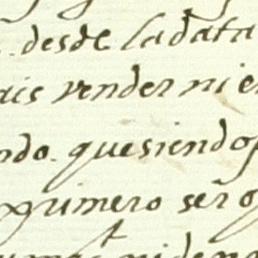 desde la data
ais vender ni e
ndo. quesiendo
primero señ